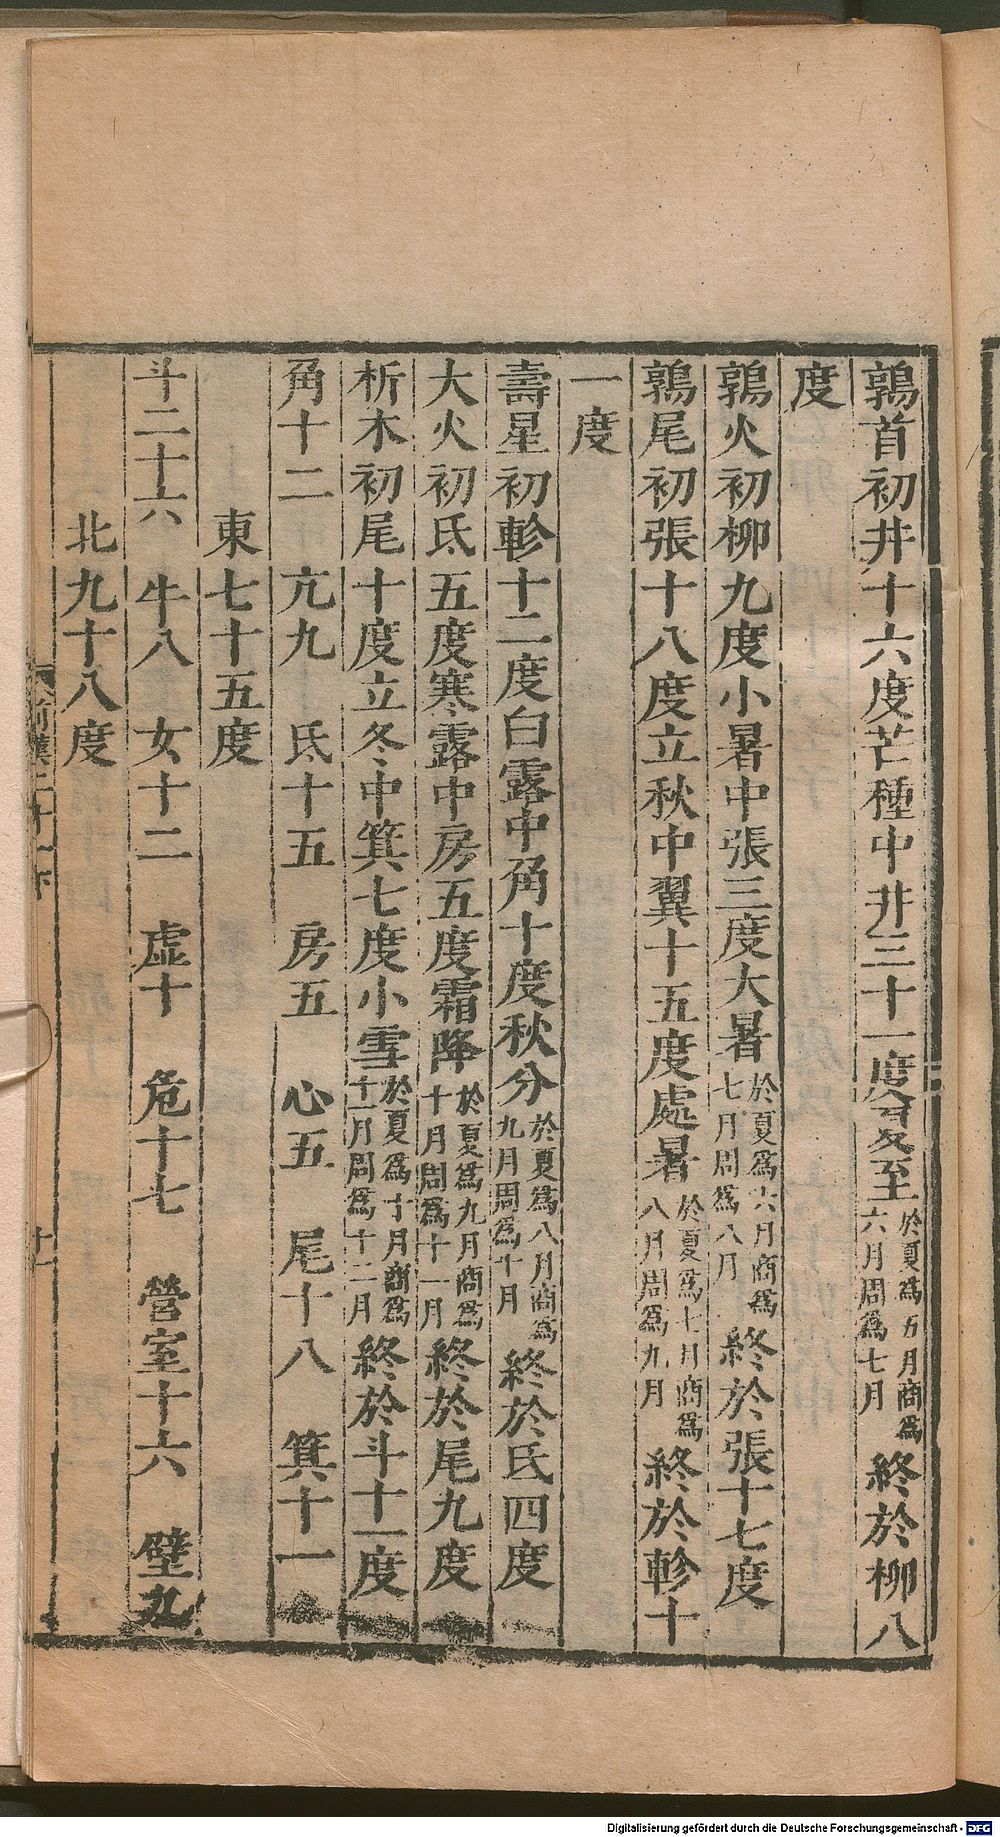 鶉首初井十六度芒種中井三十一度夏至於夏爲五月商爲六月周爲七月終於柳八
度
鶉火初柳九度小暑中張三度大暑於夏爲六月商爲七月周爲八月終於張十七度
鶉尾初張十八度立秋中翼十五度處暑於夏爲七月商爲八月周爲九月終於軫十
一度
壽星初軫十二度白露中角十度秋分於夏爲八月商爲九月周爲十月終於氐四度
大火初氐五度寒露中房五度霜降於夏爲九月商爲十月周爲十一月終於尾九度
析木初尾十度立冬中箕七度小雪於夏爲十月商爲十一月周爲十二月終於斗十一度
角十二 亢九 氐十五 房五 心五 尾十八 箕十一
東七十五度
斗二十六 牛八 女十二 虛十 危十七 營室十六 壁九
北九十八度
前漢二十一下
十一
Digitalisierung gefördert durch die Deutsche Forschungsgemeinschaft - DFG